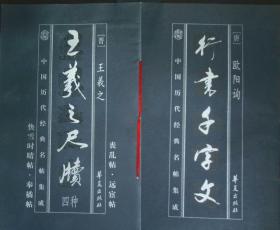 〔唐〕 欧阳询
行书千字文
中国历代经典名帖集成
华夏出版社
〔晋〕 王羲之
王羲之尺牍
四种
中国历代经典名帖集成
丧乱帖·远宦帖
快雪时晴帖·奉橘帖
华夏出版社